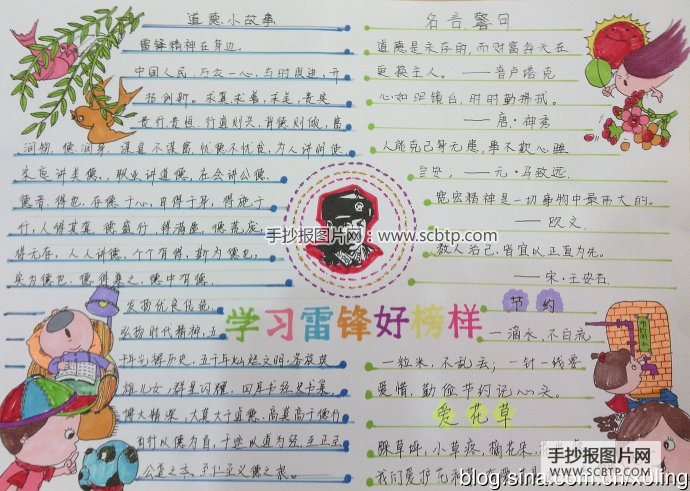 道德小故事
雷锋精神在身边.
中国人民,万众一心,与时俱进,开
拓创新。求真求善,求是,贵美
贵行,贵恒,行道则兴,背德则败,富
润物,德润身,谋道不谋富,忧德不忧食,为人讲
讲美德,职业讲道德,在会讲公德.
德者,得也,存德于心,日得于年,得施于
得元存,人人讲德,个个有得,斯为德也.
实为德也.德得兼之.德中有德.
发扬优良传统
弘扬时代精神,五
千年尘辉历史,五千年灿烂文明,各族英
雄儿女,群星闪耀,四库书经史书集,
博大精深,大真大于道德,高莫高于德行
百行以德为首,千途以道为径.
名言警句
道德是永存的,而财富每天在
更换主人。——普卢塔克
心如明镜台,时时勤拂拭。
——唐·神秀
人能克己身无患,事不欺心睡
自安。——元·马致远.
宽宏精神是一切事物中最伟大的。
——欧文
教人治己,皆宜以正直为先。
——宋·王安石
手抄报图片网 www.scbtp.com
学习雷锋好榜样
节约
一滴水,不白流
一粒米,不乱丢;一针一线要
爱惜,勤俭节约记心头.
爱花草
踩草坪,小草疼,摘花朵
我们爱护花和
手抄报图片网
WWW.SCBTP.COM
blog.sina.com.cn/xuling